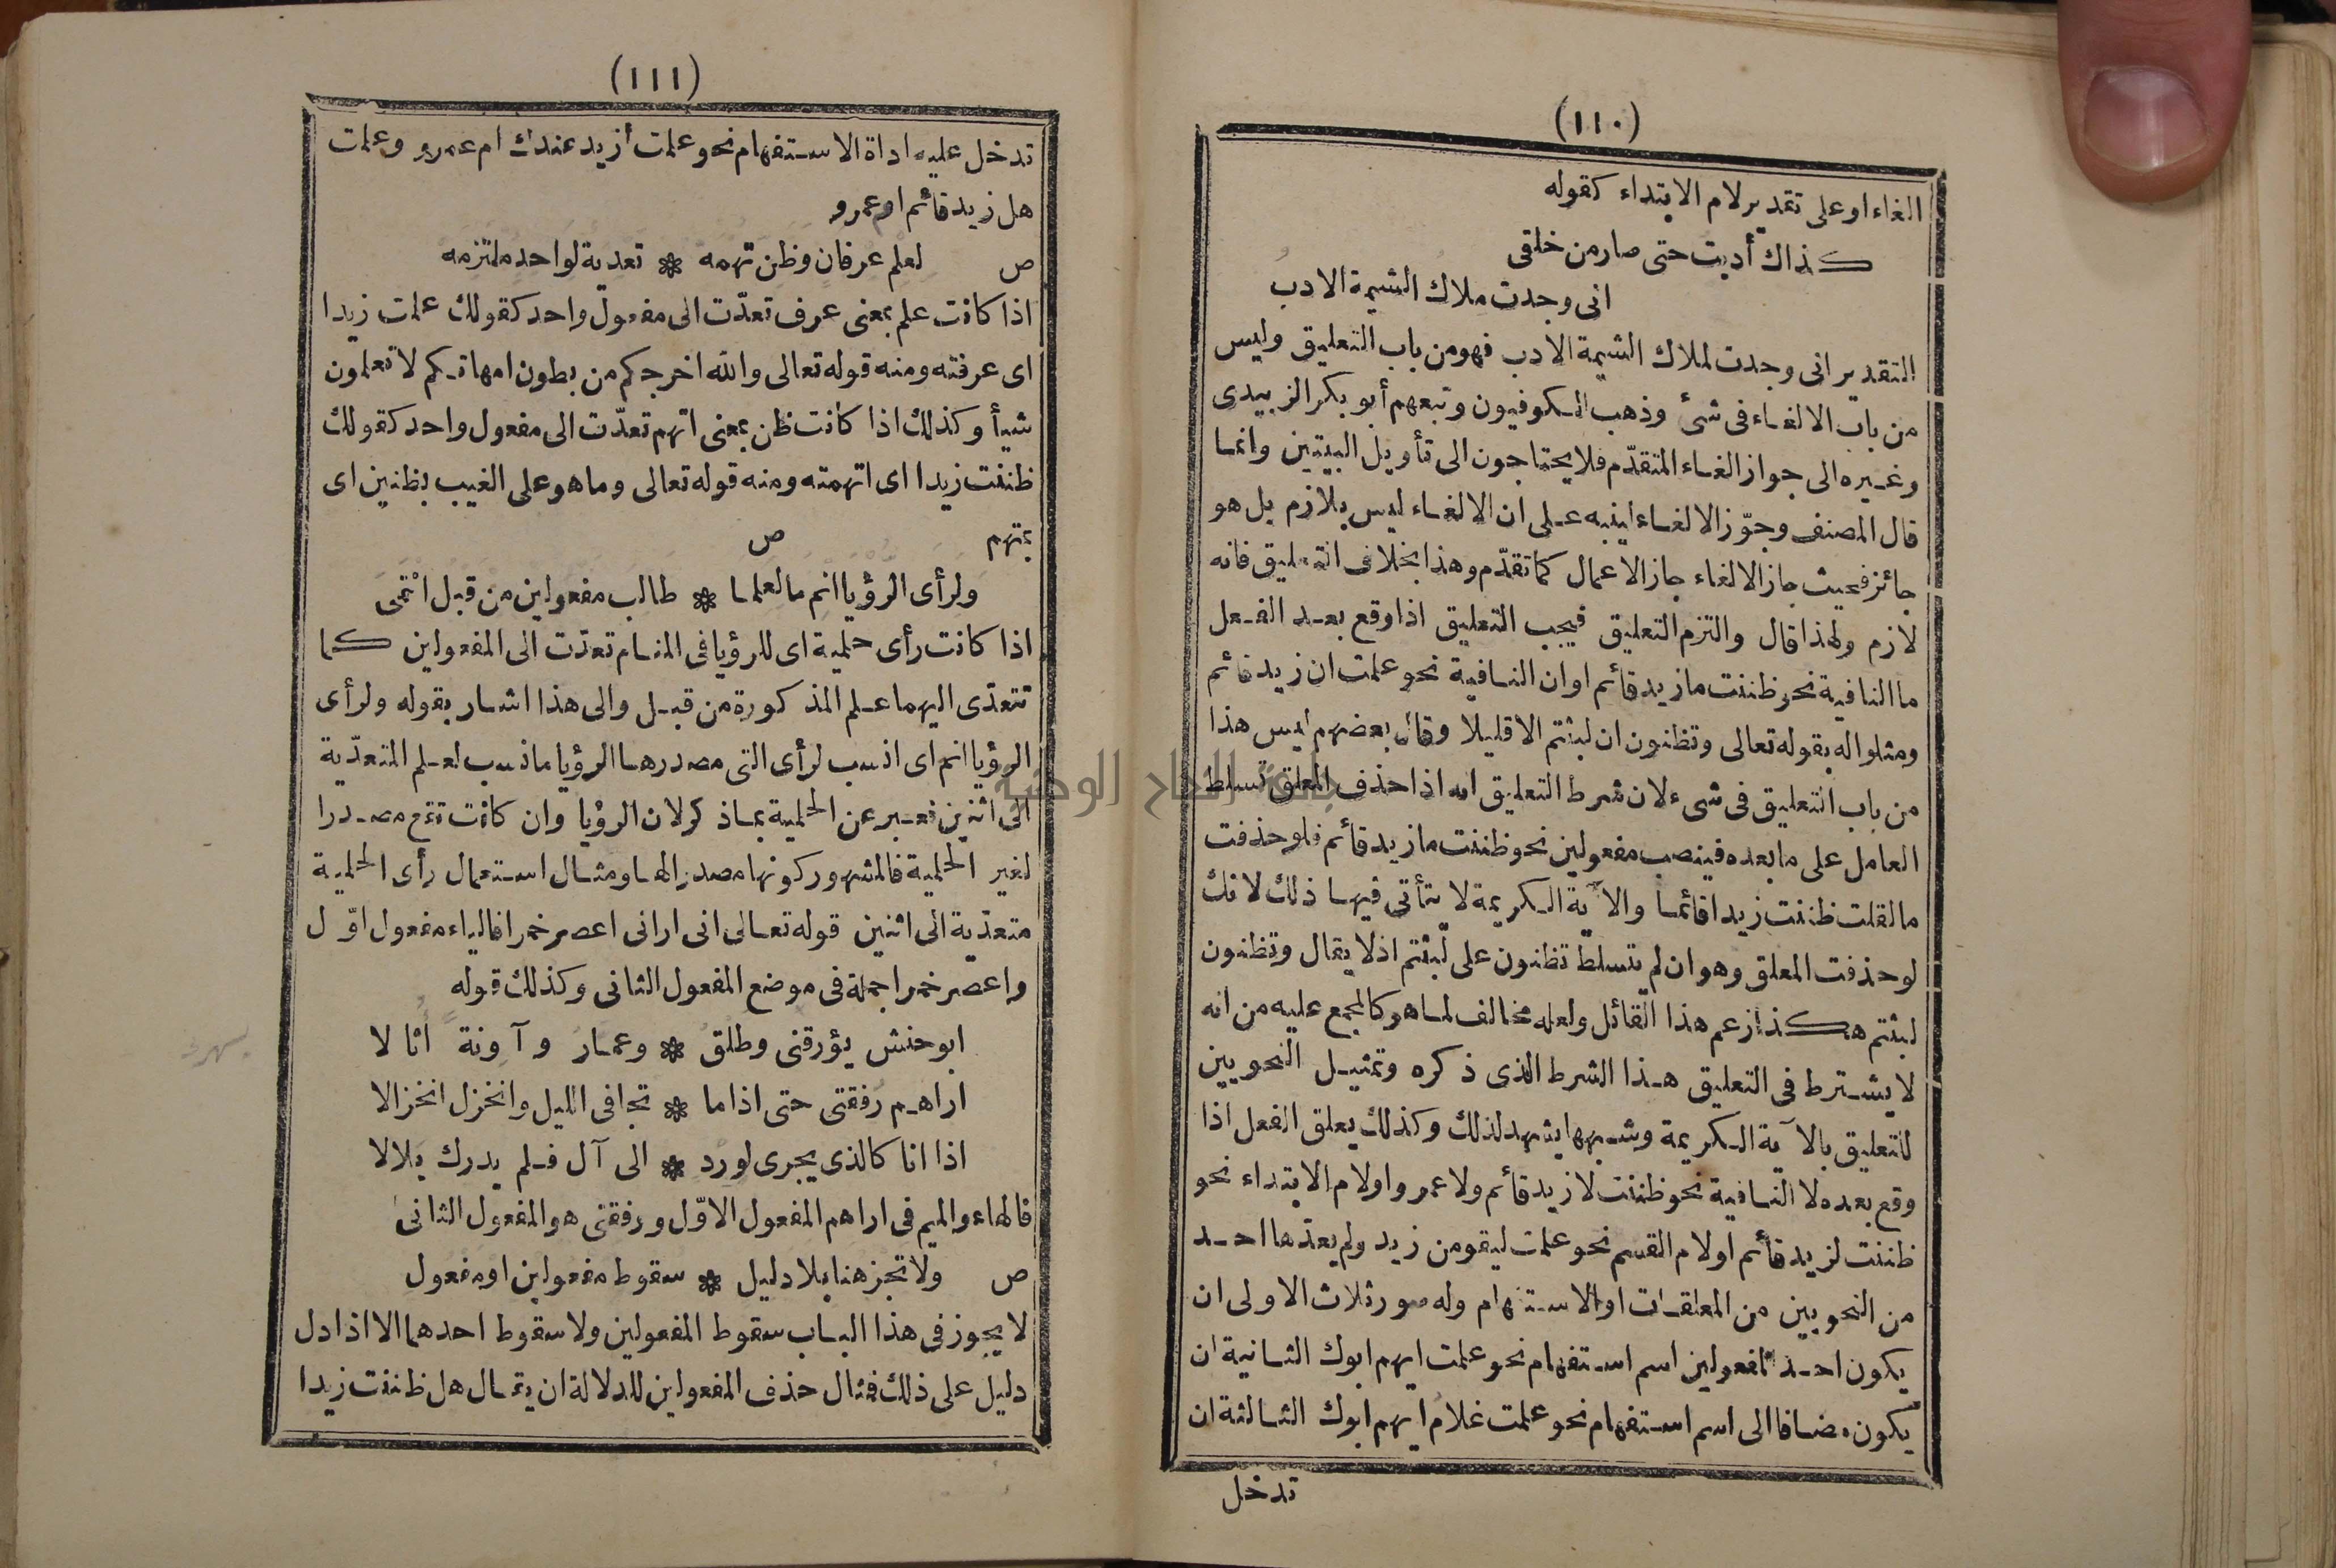 (١١٠)
الغاء او على تقدير لام الابتداء كقوله
كذاك أدبت حتى صار من خلقى
انى وجدت ملاك الشيمة الادب
التقدير انى وجدت لملاك الشيمة الادب فهو من باب التعليق وليس
من باب الالغاء فى شئ وذهب الكوفيون وتبعهم أبو بكر الزبيدى
وغيره الى جواز الغاء المتقدّم فلا يحتاجون الى تأويل البيتين وانما
قال المصنف وجوّز الالغاء لينبه على ان الالغاء ليس بلازم بل هو
جائز فحيث جاز الالغاء جاز الاعمال كما تقدّم وهذا بخلاف التعليق فانه
لازم ولهذا قال والتزم التعليق فيجب التعليق اذا وقع بعد الفعل
ما النافية نحو ظننت ما زيد قائم او ان النافية نحو علمت ان زيد قائم
ومثلوا له بقوله تعالى وتظنون ان لبثتم الا قليلا وقال بعضهم ليس هذا
من باب التعليق فى شىء لان شرط التعليق انه اذا حذف المعلق تسلط
العامل على ما بعده فينصب مفعولين نحو ظننت ما زيد قائم فلو حذفت
ما لقلت ظننت زيدا قائما والآية الكريمة لا يتأتى فيها ذلك لانك
لو حذفت المعلق وهو ان لم يتسلط تظنون على لبثتم اذ لا يقال وتظنون
لبثتم هكذا زعم هذا القائل ولعله مخالف لما هو كالمجمع عليه من انه
لا يشترط فى التعليق هذا الشرط الذى ذكره وتمثيل النحويين
للتعليق بالآية الكريمة وشبهها يشهد لذلك وكذلك يعلق الفعل اذا
وقع بعده لا النافية نحو ظننت لا زيد قائم ولا عمرو او لام الابتداء نحو
ظننت لزيد قائم او لام القسم نحو علمت ليقومن زيد ولم يعدّها احد
من النحويين من المعلقات او الاستفهام وله صور ثلاث الاولى ان
يكون احد المفعولين اسم استفهام نحو علمت ايهم ابوك الثانية ان
يكون مضافا الى اسم استفهام نحو علمت غلام ايهم ابوك الثالثة ان
تدخل
(١١١)
تدخل عليه اداة الاستفهام نحو علمت أزيد عندك ام عمرو وعلمت
هل زيد قائم او عمرو
ص لعلم عرفان وظن تهمه * تعدية لواحد ملتزمه
اذا كانت علم بمعنى عرف تعدّت الى مفعول واحد كقولك علمت زيدا
اى عرفته ومنه قوله تعالى والله اخرجكم من بطون امهاتكم لا تعلمون
شيأ وكذلك اذا كانت ظن بمعنى اتهم تعدّت الى مفعول واحد كقولك
ظننت زيدا اى اتهمته ومنه قوله تعالى وما هو على الغيب بظنين اى
بمتهم ص
ولرأى الرؤيا انم ما لعلما * طالب مفعولين من قبل انتمى
اذا كانت رأى حلمية اى للرؤيا فى المنام تعدّت الى المفعولين كما
تتعدّى اليهما علم المذكورة من قبل والى هذا اشار بقوله ولرأى
الرؤيا انم اى انسب لرأى التى مصدرها الرؤيا ما نسب لعلم المتعدّية
الى اثنين فعبر عن الحلمية بماذكر لان الرؤيا وان كانت تقع مصدرا
لغير الحلمية فالمشهور كونها مصدرا لها ومثال استعمال رأى الحلمية
متعدّية الى اثنين قوله تعالى انى ارانى اعصر خمرا فالياء مفعول اوّل
واعصر خمرا جملة فى موضع المفعول الثانى وكذلك قوله
ابو حنش يؤرقنى وطلق * وعمار وآونة اثالا
اراهم رفقتى حتى اذا ما * تجافى الليل وانخزل انخزالا
اذا انا كالذى يجرى لورد * الى آل فلم يدرك بلالا
فالهاء والميم فى اراهم المفعول الاوّل ورفقتى هو المفعول الثانى
ص ولا تجز هنا بلا دليل * سقوط مفعولين او مفعول
لا يجوز فى هذا الباب سقوط المفعولين ولا سقوط احدهما الا اذا دل
دليل على ذلك فمثال حذف المفعولين للدلالة ان يقال هل ظننت زيدا